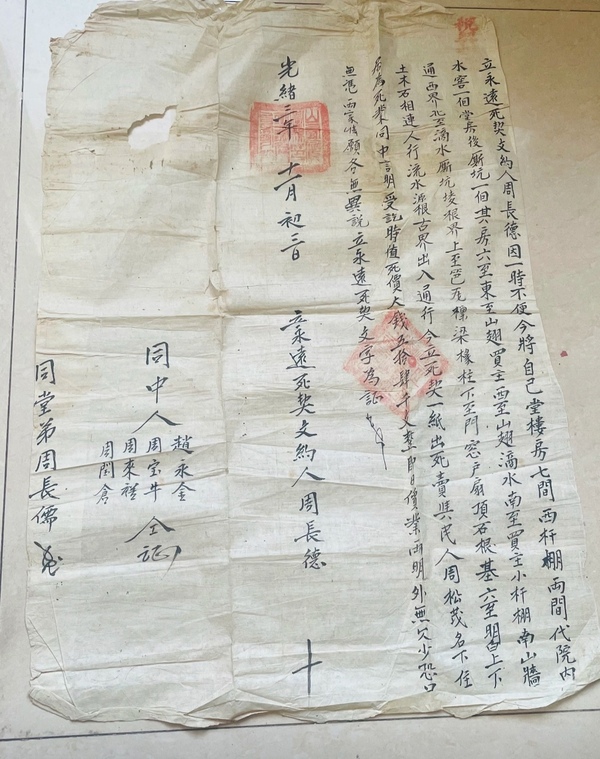 立永遠死契文約人周長德因一時不便今將自己堂樓房七間西杆棚兩間代院内
水窖一個堂房後厮坑一個其房六至東至山翅買主西至山翅滴水南至買主小杆棚南山牆
通西界北至滴水厮坑堎根界上至笆瓦檁梁椽柱下至門窓戸扇頂石根基六至明白上下
土木石相連人行流水源根古界出入通行今立死契一紙出死賣與民人周松茂名下住
居為死業同中言明受訖時值死價大錢五拾肆千文整即日價業両明外無欠少恐口
無憑両家情願各無異說立永遠死契文字為証
光緒三年十一月初三日
立永遠死契文約人周長德十
同中人
趙永金
周宝牛
周來禎
周閆倉
仝証
同堂弟周長儒